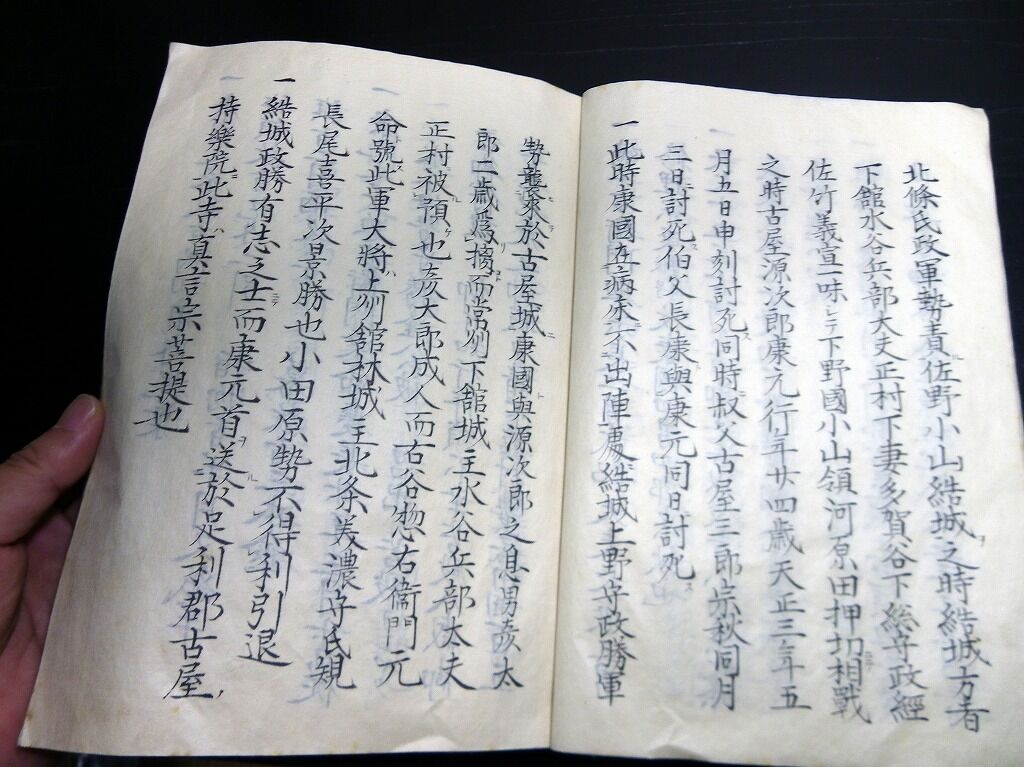 北條氏政軍勢責佐野小山結城之時結城方者
下館水谷兵部大夫正村下妻多賀谷下総守政經
佐竹義宣一味シテ下野國小山領河原田押切相戰
之時古屋源次郎康元行年廿四歳天正三年五
月五日申刻討死同時叔父古屋三郎宗秋同月
三日討死伯父長康與康元同日討死
一此時康國在病床不出陣處結城上野守政勝軍
勢襲來於古屋城康國與源次郎之息男亥太
郎二歳爲擒而常列下舘城主水谷兵部太夫
正村被預也亥大郎成人而古谷惣右衞門元
命號此軍大將上刕舘林城主北条美濃守氏規
長尾喜平次景勝也小田原勢不得利引退
一結城政勝有志之士ニテ而康元首送於足利郡古屋
持樂院此寺真言宗菩提也